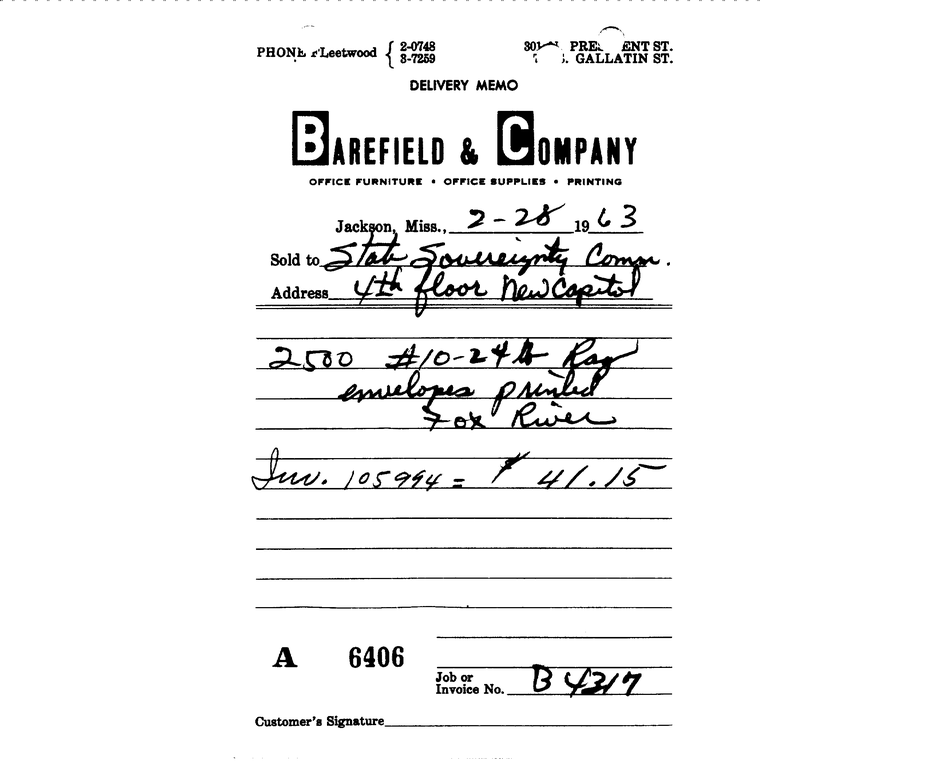 PHONE Fleetwood { 2-0748
3-7259
PRESIDENT ST.
S. GALLATIN ST.
DELIVERY MEMO
BAREFIELD & COMPANY
OFFICE FURNITURE • OFFICE SUPPLIES • PRINTING
Jackson, Miss., 2-28 1963
Sold to State Sovereignty Comm.
Address 4th floor New Capitol
2500 #10-24 lb Rag
envelopes printed
Fox River
Inv. 105994 = $ 41.15
A 6406
Job or
Invoice No. B 4317
Customer's Signature